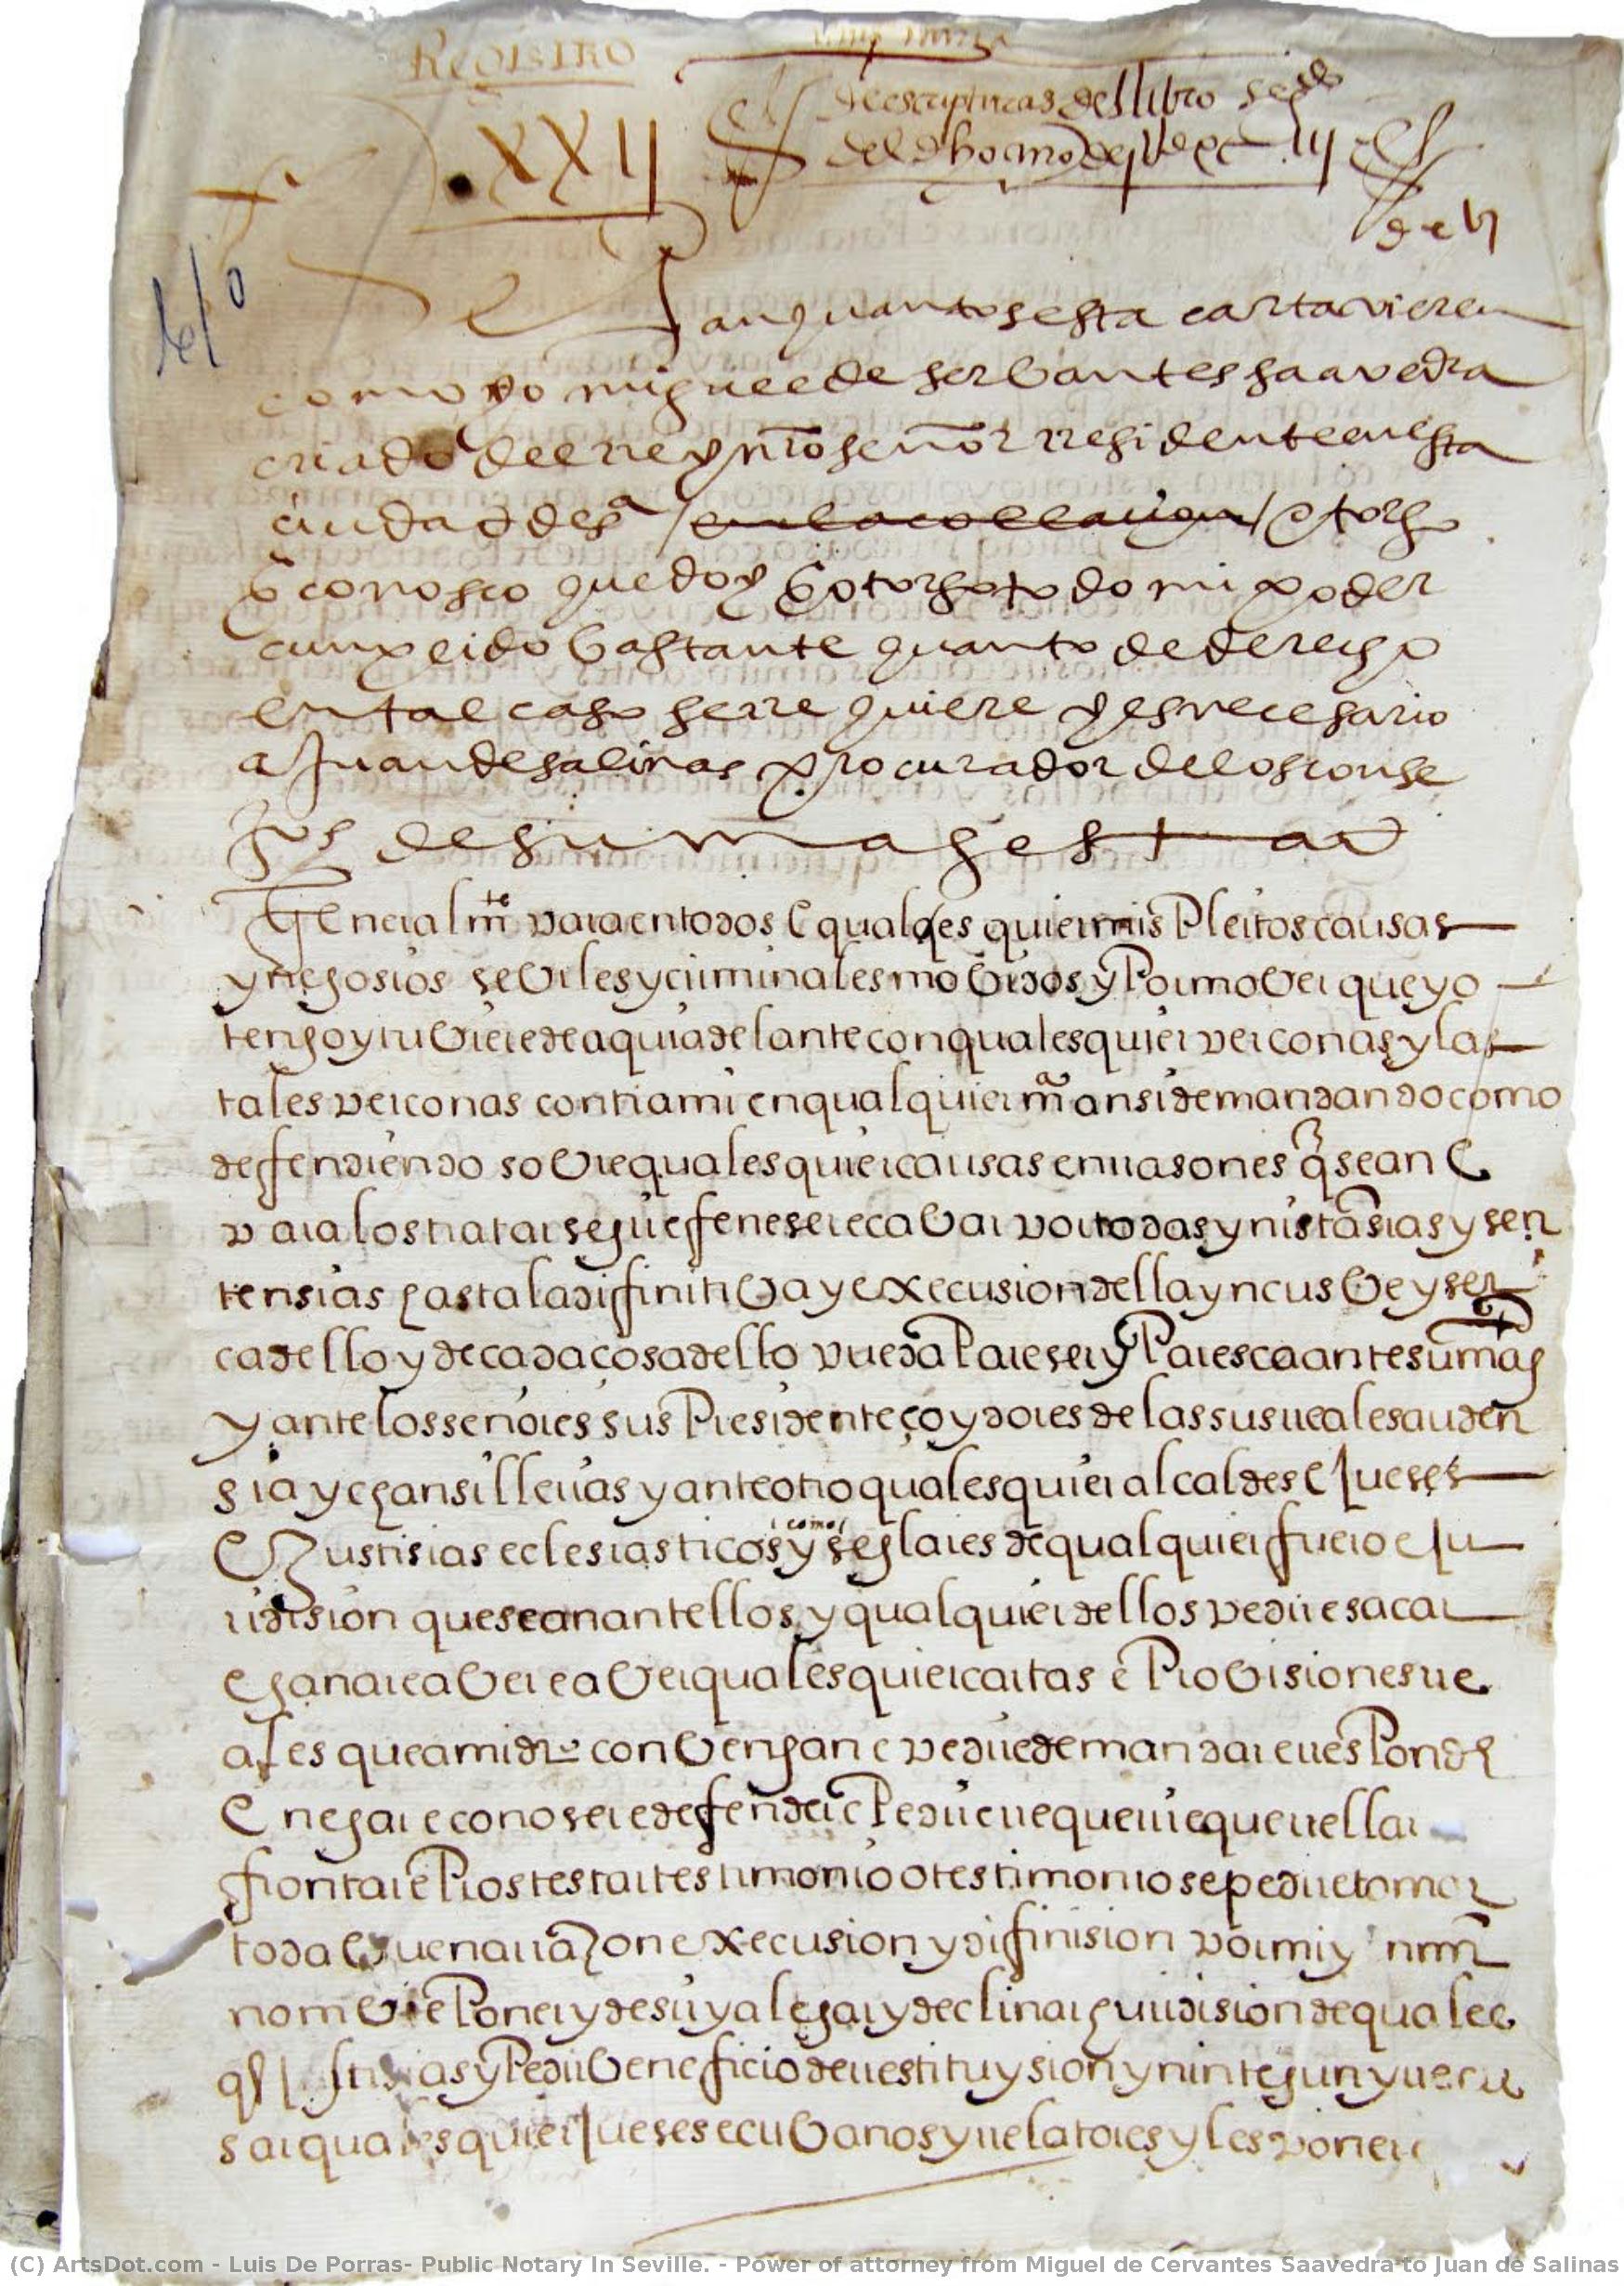 REGISTRO
XXII
de escripturas del libro segdo
del dho año de
Sepan quantos esta carta vieren
como yo miguel de serbantes saavedra
criado del rey nro señor rresidente en esta
ciudad de sa en la collacion otorgo
E conosco que doy E otorgo todo mi poder
cunplido bastante quanto de derecho
en tal caso se rrequiere y es necesario
a Juan de salinas procurador de los conse
jos de su magestad
Generalmte para en todos E qualesquier mis Pleitos causas
y negosios sebiles y criminales mobidos y Por mober que yo
tengo y tubiere de aqui adelante con qualesquier perçonas y las
tales perconas contra mi en qualquier mãa ansi demandando como
deffendiendo sobre qualesquier causas en rrasones q sean E
para los tratar seguir feneser e cabar por todas ynistãsias y sen
tensias hasta la difinitiba y execusion della yncusbe y ser
ca dello y de cada cosa dello pueda Pareser y Paresca ante su mag
y ante los senores sus Presidente e oydores de las sus rreales auden
sia y chansillerias y ante otro qualesquier alcaldes E Jueses
E Justisias eclesiasticos y como seglares de qualquier fuero e Ju
ridision que sean ante ellos y qualquier dellos pedir e sacar
e ganar e aber e aber qualesquier cartas e Probisiones rre
ales que a mi dro conbengan e pedir e demandar e rresPonder
E negar e conoser e defender e Pedir e rrequerir e querellar
frontar e Prostestar testimonio o testimonio se pedir e tomar
toda buena rrazon execusion y difinision por mi y nmi
nombre Poner y desir y alegar y declinar juridision de quales
qr Justisias y Pedir beneficio de rrestituysion yn integrun y rrecu
sar qualesquier Jueses escribanos y rrelatores y les poner
(C) ArtsDot.com - Luis De Porras- Public Notary In Seville. - Power of attorney from Miguel de Cervantes Saavedra to Juan de Salinas